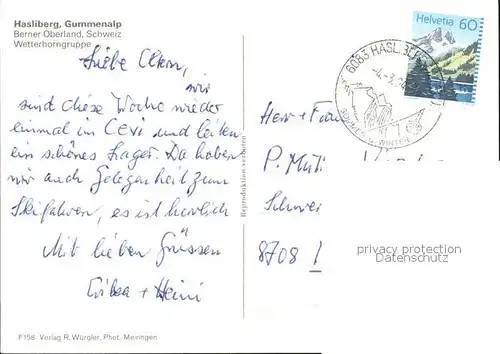 Hasliberg, Gummenalp
Berner Oberland, Schweiz
Wetterhorngruppe
Liebe Eltern,
wir
sind diese Woche wieder
einmal im Cevi und leiten
ein schönes Lager. Da haben
wir auch Gelegenheit zum
Skifahren, es ist herrlich
Mit lieben Grüssen
+ Heini
F158 Verlag R. Würgler, Phot. Meiringen
Reproduktion verboten
Helvetia 60
6083 HASL.BERG
SOMMER WINTER
Herr + Frau
P. Mül
Schwei
8708
privacy protection
Datenschutz